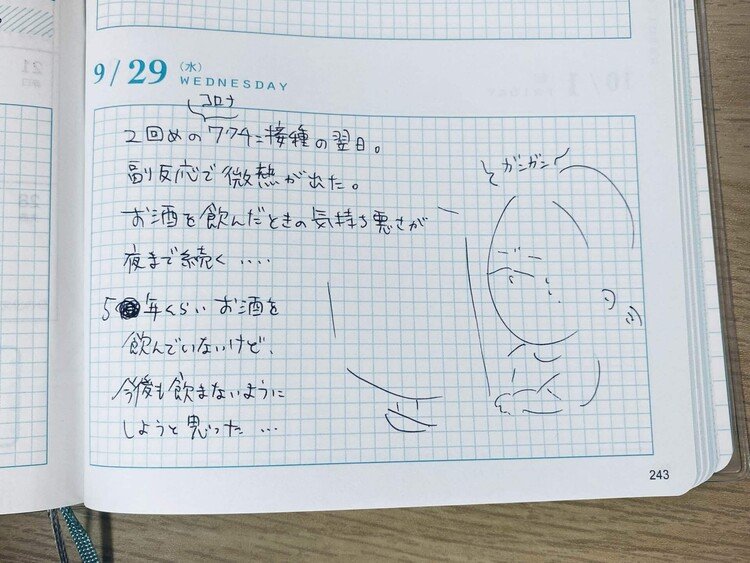 9/29 (水) WEDNESDAY
コロナ
2回めのワクチン接種の翌日。
副反応で微熱が出た。
お酒を飲んだときの気持ち悪さが
夜まで続く‥‥
5年くらいお酒を
飲んでいないけど、
今後も飲まないように
しようと思った…
ガンガン
243